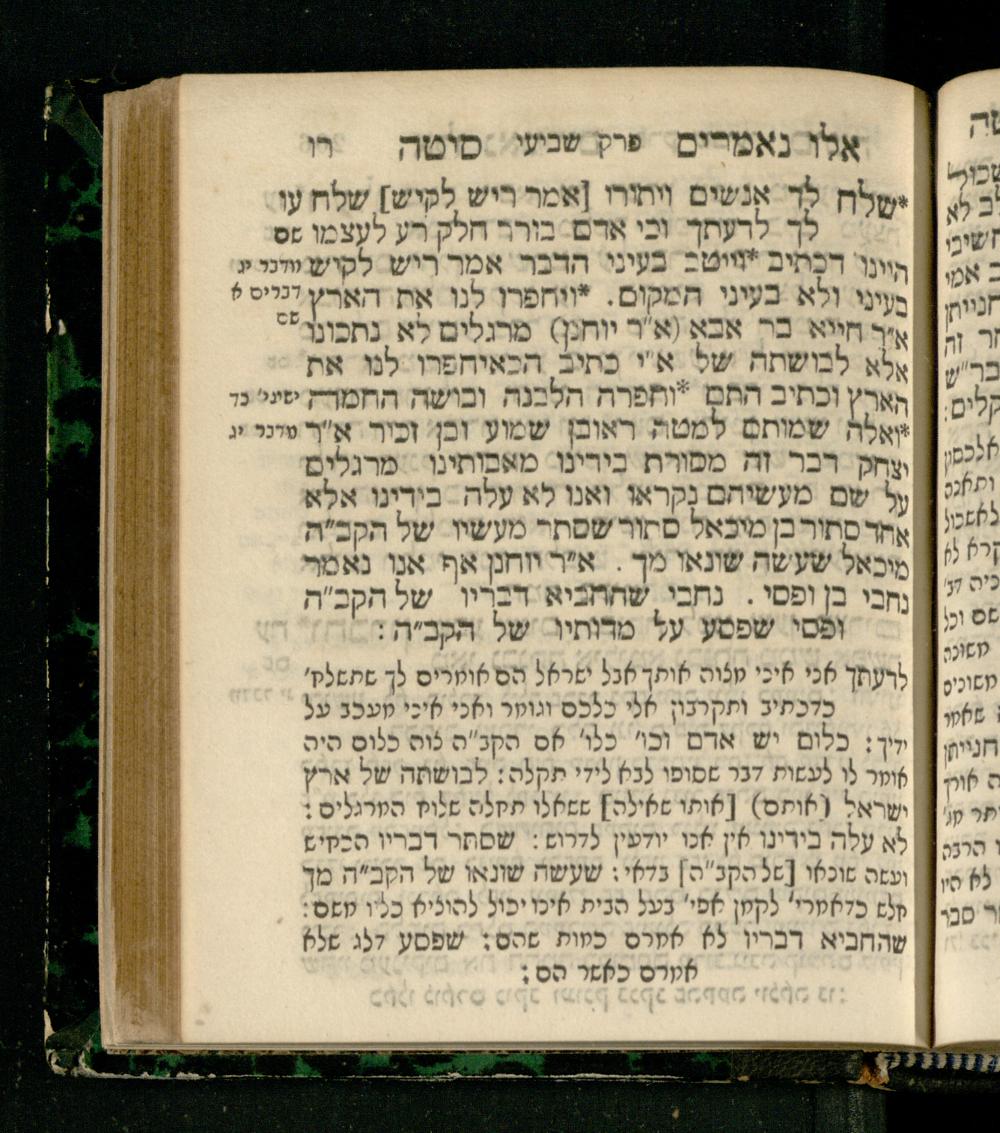 אלו נאמרים פרק שביעי סוטה רו
*שלח לך אנשים ויתורו [אמר ריש לקיש] שלח עו
לך לדעתך וכי אדם בורר חלק רע לעצמו שם
היינו דכתיב *וייטב בעיני הדבר אמר ריש לקיש מדבר יג
בעיני ולא בעיני המקום. *ויחפרו לנו את הארץ דברים א
א״ר חייא בר אבא (א״ר יוחנן) מרגלים לא נתכונו שם
אלא לבושתה של א״י כתיב הכא יחפרו לנו את
הארץ וכתיב התם *וחפרה הלבנה ובושה החמה ישעי׳ כד
*ואלה שמותם למטה ראובן שמוע ובן זכור א״ר מדבר יג
יצחק דבר זה מסורת בידינו מאבותינו מרגלים
על שם מעשיהם נקראו ואנו לא עלה בידינו אלא
אחד סתור בן מיכאל סתור שסתר מעשיו של הקב״ה
מיכאל שעשה שונאו מך . א״ר יוחנן אף אנו נאמר
נחבי בן ופסי . נחבי שהחביא דבריו של הקב״ה
ופסי שפסע על מדותיו של הקב״ה :
לדעתך אני איני מצוה אותך אבל ישראל הם אומרים לך שתשלח׳
כדכתיב ותקרבון אלי כלכם וגומר ואני איני מעכב על
ידיך : כלום יש אדם וכו׳ כלו׳ אם הקב״ה צוה כלום היה
אומר לו לעשות דבר שסופו לבא לידי תקלה : לבושתה של ארץ
ישראל (אותם) [אותו שאילה] ששאלו תקלה שלוח המרגלים :
לא עלה בידינו אין אנו יודעין לדרוש : שסתר דבריו הכחיש
ועשה שונאו [של הקב״ה] בדאי : שעשה שונאו של הקב״ה מך
חלש כדאמרי׳ לקמן אפי׳ בעל הבית אינו יכול להוציא כליו משם :
שהחביא דבריו לא אמרם כמות שהם : שפסע דלג שלא
אמרם כאשר הם :